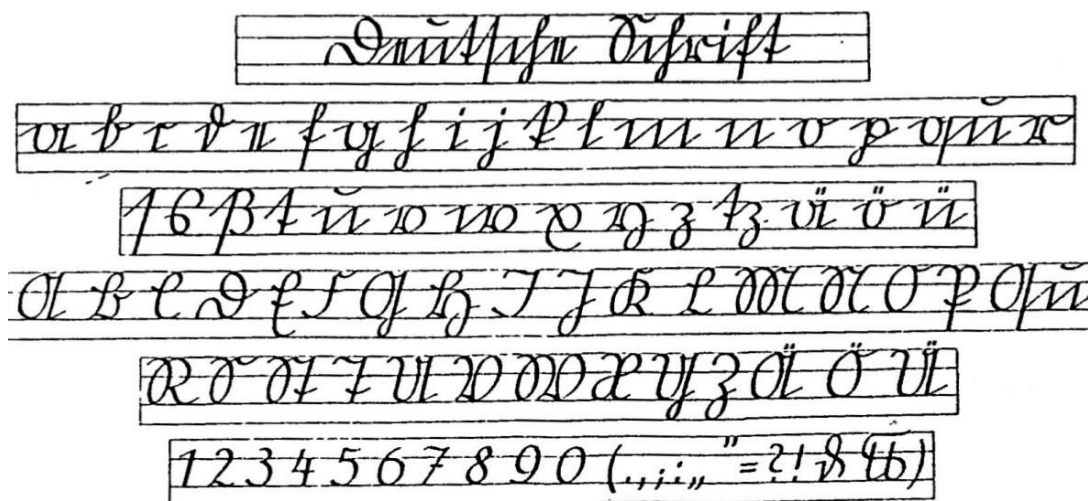 Deutsche Schrift
a b c d e f g h i j k l m n o p qu r
ſ s ß t u v w x y z tz ä ö ü
A B C D E F G H I J K L M N O P Qu
R S St T U V W X Y Z Ä Ö Ü
1 2 3 4 5 6 7 8 9 0 (.,;:„ "=?!